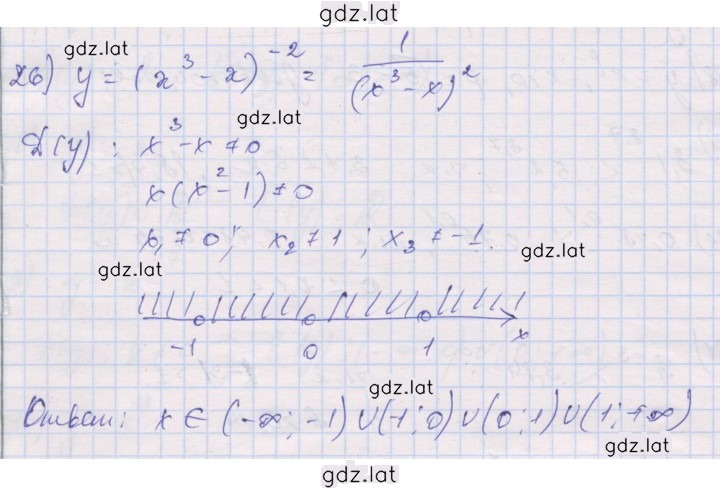 gdz.lat
gdz.lat
26) y = (x³ - x)⁻² = 1/(x³ - x)²
gdz.lat
D(y) : x³ - x ≠ 0
x(x² - 1) ≠ 0
x₁ ≠ 0; x₂ ≠ 1; x₃ ≠ -1.
gdz.lat
gdz.lat
-1 0 1 x
gdz.lat
Ответ: x ∈ (-∞; -1) ∪ (-1; 0) ∪ (0; 1) ∪ (1; +∞)
gdz.lat
gdz.lat